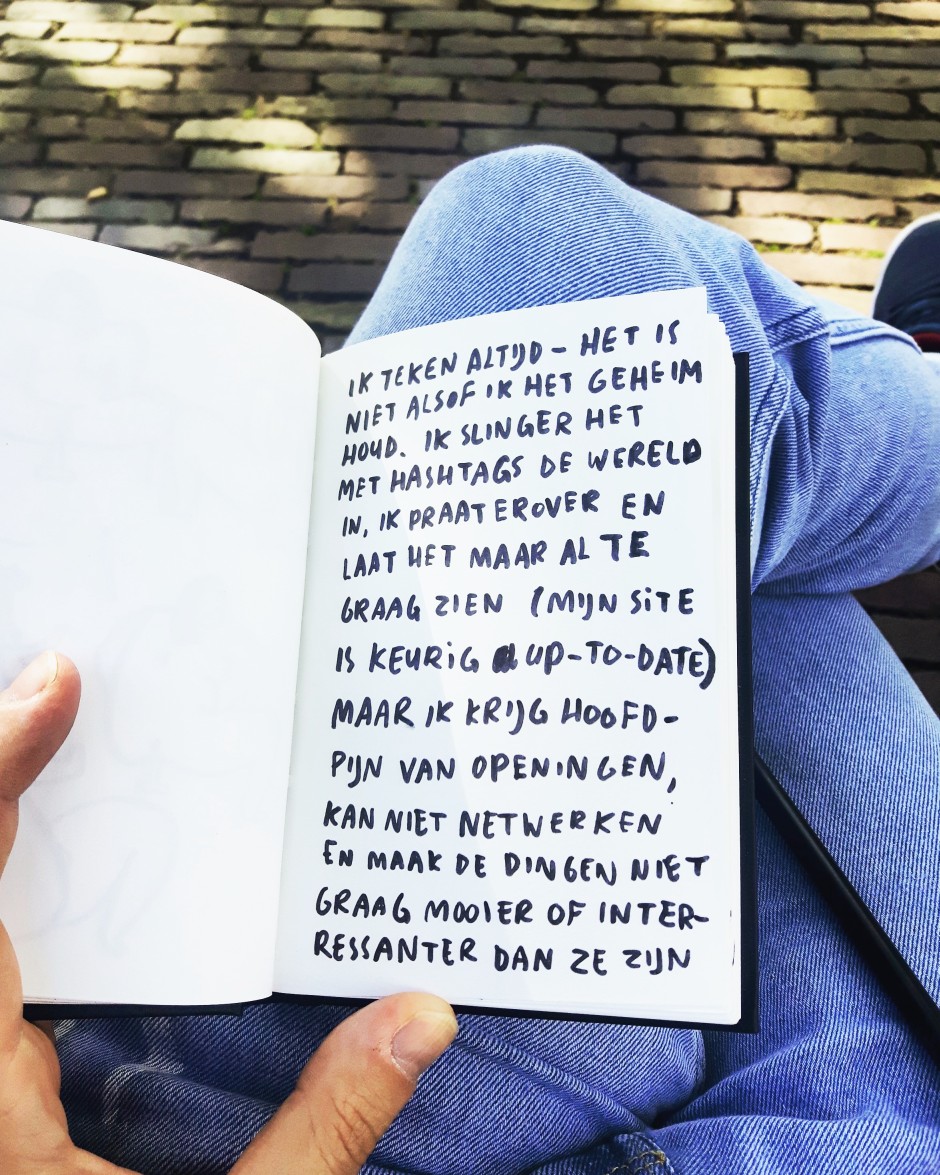 IK TEKEN ALTIJD – HET IS
NIET ALSOF IK HET GEHEIM
HOUD. IK SLINGER HET
MET HASHTAGS DE WERELD
IN, IK PRAAT EROVER EN
LAAT HET MAAR AL TE
GRAAG ZIEN (MIJN SITE
IS KEURIG UP-TO-DATE)
MAAR IK KRIJG HOOFD-
PIJN VAN OPENINGEN,
KAN NIET NETWERKEN
EN MAAK DE DINGEN NIET
GRAAG MOOIER OF INTER-
RESSANTER DAN ZE ZIJN